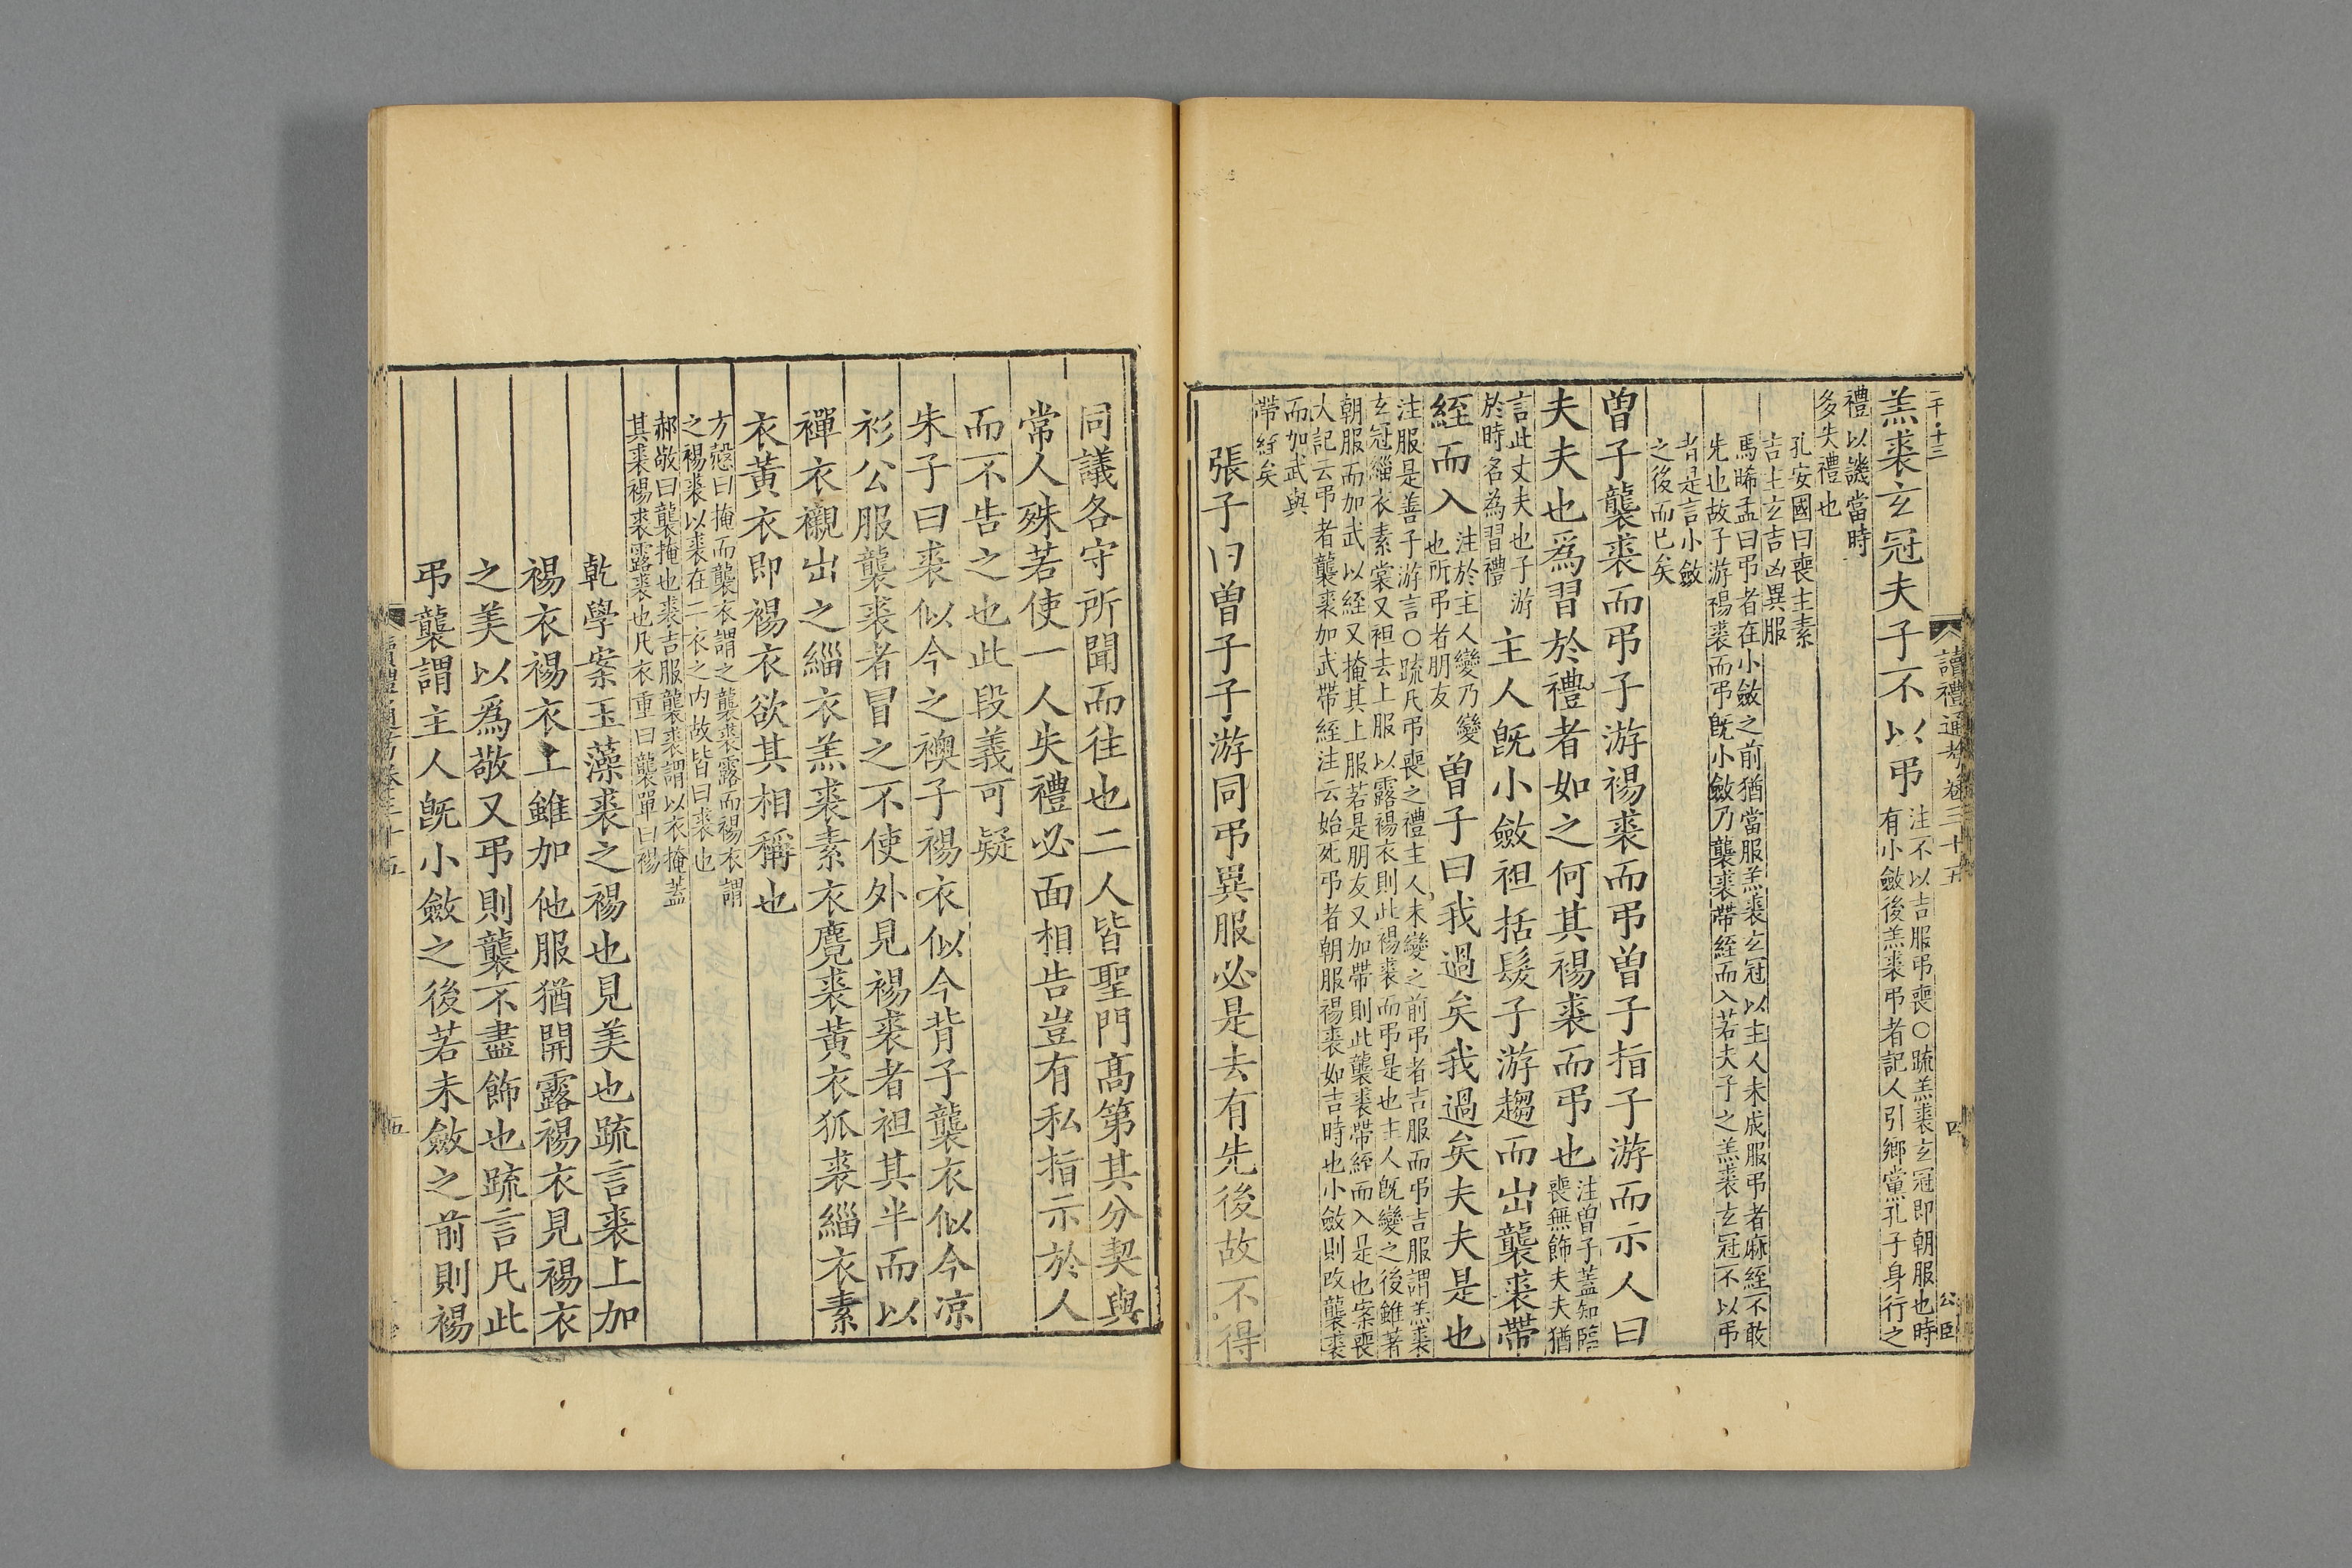 二千·十三
讀禮通考卷三十五
四
公臣
羔裘玄冠夫子不以弔
注不以吉服弔喪○疏羔裘玄冠即朝服也時
有小斂後羔裘弔者記人引鄉黨孔子身行之
禮以譏當時
多失禮也
孔安國曰喪主素
吉主玄吉凶異服
馬晞孟曰弔者在小斂之前猶當服羔裘玄冠以主人未成服弔者麻絰不敢
先也故子游裼裘而弔旣小斂乃襲裘帶絰而入若夫子之羔裘玄冠不以弔
者是言小斂
之後而已矣
曾子襲裘而弔子游裼裘而弔曾子指子游而示人曰
夫夫也爲習於禮者如之何其裼裘而弔也
注曾子蓋知臨
喪無飾夫夫猶
言此丈夫也子游
於時名為習禮
主人旣小斂袒括髮子游趨而出襲裘帶
絰而入
注於主人變乃變
也所弔者朋友
曾子曰我過矣我過矣夫夫是也
注服是善子游言○疏凡弔喪之禮主人未變之前弔者吉服而弔吉服謂羔裘
玄冠緇衣素裳又袒去上服以露裼衣則此裼裘而弔是也主人旣變之後雖著
朝服而加武以絰又掩其上服若是朋友又加帶則此襲裘帶絰而入是也案喪
大記云弔者襲裘加武帶絰注云始死弔者朝服裼裘如吉時也小斂則改襲裘
而加武與
帶絰矣
張子曰曾子子游同弔異服必是去有先後故不得
同議各守所聞而往也二人皆聖門高第其分契與
常人殊若使一人失禮必面相告豈有私指示於人
而不告之也此段義可疑
朱子曰裘似今之襖子裼衣似今背子襲衣似今凉
衫公服襲裘者冒之不使外見裼裘者袒其半而以
襌衣襯出之緇衣羔裘素衣麑裘黃衣狐裘緇衣素
衣黃衣即裼衣欲其相稱也
方慤曰掩而襲衣謂之襲裘露而裼衣謂
之裼裘以裘在二衣之内故皆曰裘也
郝敬曰襲掩也裘吉服襲裘謂以衣掩蓋
其裘裼裘露裘也凡衣重曰襲單曰裼
乾學案玉藻裘之裼也見美也疏言裘上加
裼衣裼衣上雖加他服猶開露裼衣見裼衣
之美以爲敬又弔則襲不盡飾也疏言凡此
弔襲謂主人旣小斂之後若未斂之前則裼
讀禮通考卷三十五
五